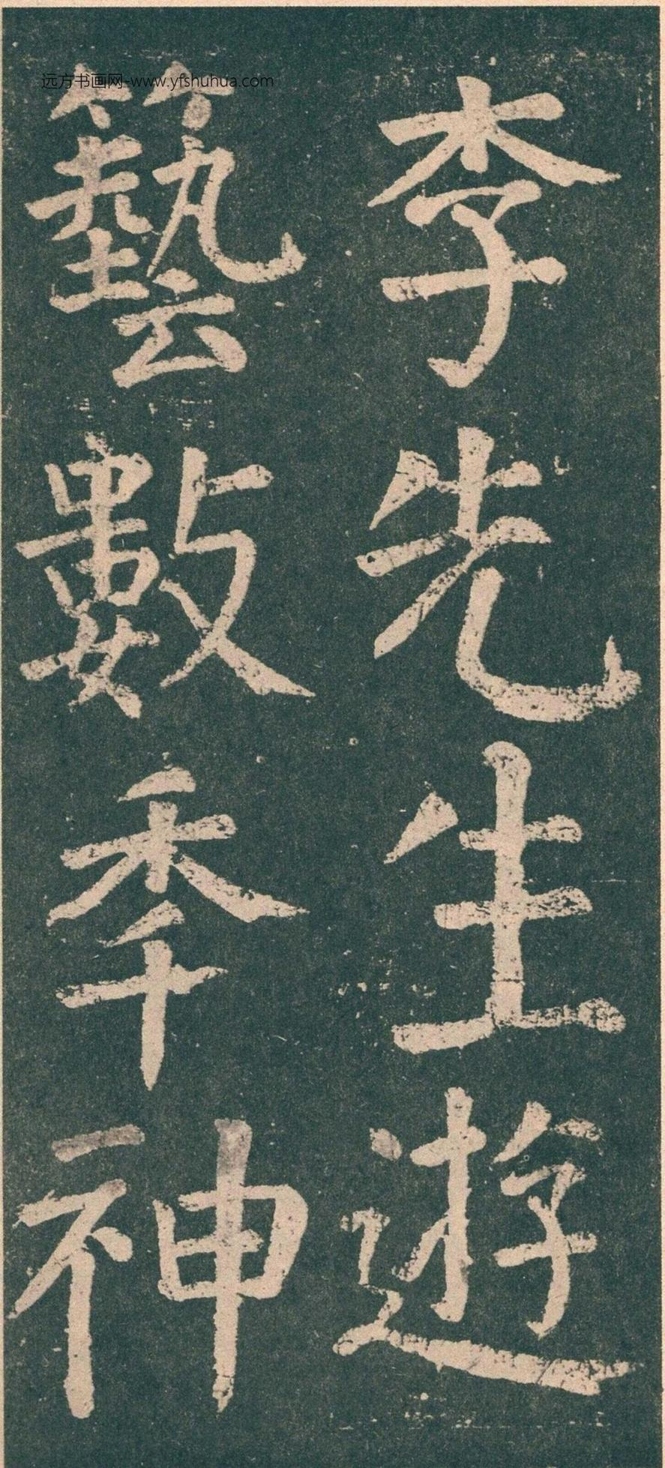 远方书画网-www.yfshuhua.com
李先生遊
藝數秊神